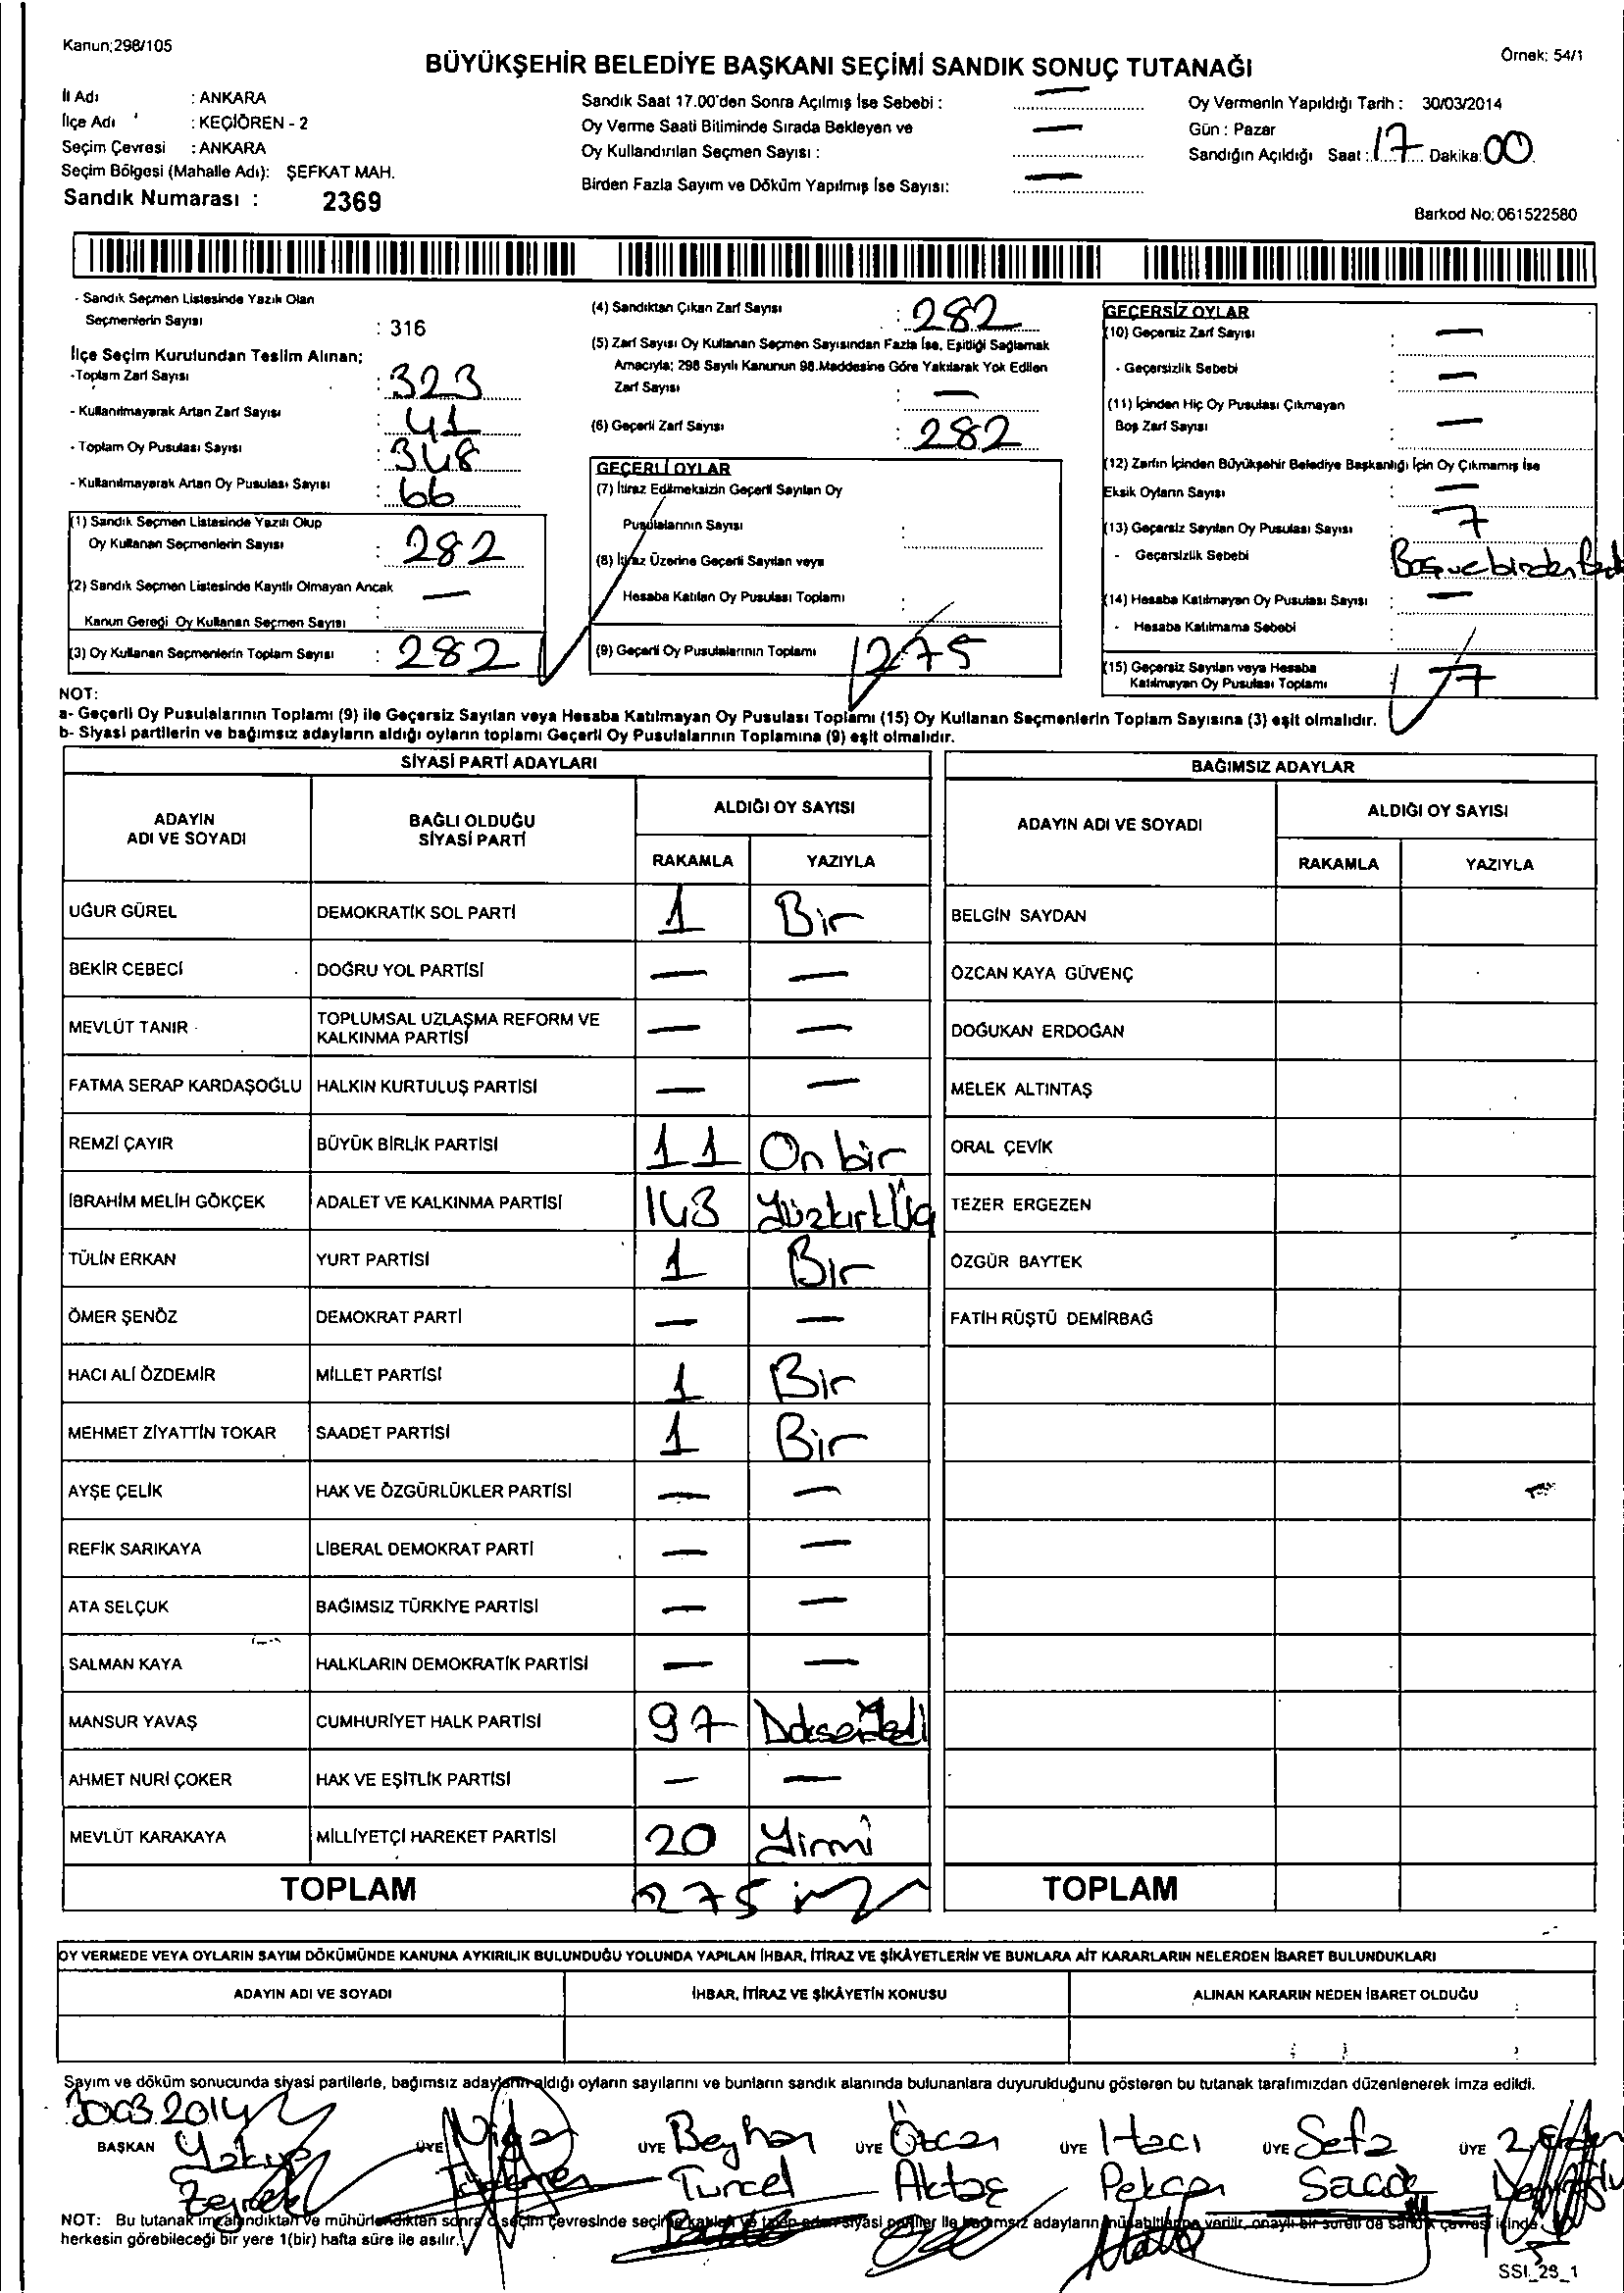 Kanun;298/105
Örnek: 54/1
BÜYÜKŞEHİR BELEDİYE BAŞKANI SEÇİMİ SANDIK SONUÇ TUTANAĞI
İl Adı : ANKARA
İlçe Adı : KEÇİÖREN - 2
Seçim Çevresi : ANKARA
Seçim Bölgesi (Mahalle Adı): ŞEFKAT MAH.
Sandık Numarası : 2369
Sandık Saat 17.00'den Sonra Açılmış İse Sebebi : —
Oy Verme Saati Bitiminde Sırada Bekleyen ve
Oy Kullandırılan Seçmen Sayısı : —
Birden Fazla Sayım ve Döküm Yapılmış İse Sayısı: —
Oy Vermenin Yapıldığı Tarih : 30/03/2014
Gün : Pazar
Sandığın Açıldığı Saat : 17 Dakika: 00
Barkod No: 061522580
- Sandık Seçmen Listesinde Yazılı Olan
Seçmenlerin Sayısı : 316
İlçe Seçim Kurulundan Teslim Alınan;
-Toplam Zarf Sayısı : 323
- Kullanılmayarak Artan Zarf Sayısı : 41
- Toplam Oy Pusulası Sayısı : 348
- Kullanılmayarak Artan Oy Pusulası Sayısı : 66
(1) Sandık Seçmen Listesinde Yazılı Olup
Oy Kullanan Seçmenlerin Sayısı : 282
(2) Sandık Seçmen Listesinde Kayıtlı Olmayan Ancak
Kanun Gereği Oy Kullanan Seçmen Sayısı : —
(3) Oy Kullanan Seçmenlerin Toplam Sayısı : 282
(4) Sandıktan Çıkan Zarf Sayısı : 282
(5) Zarf Sayısı Oy Kullanan Seçmen Sayısından Fazla İse, Eşitliği Sağlamak
Amacıyla; 298 Sayılı Kanunun 98.Maddesine Göre Yakılarak Yok Edilen
Zarf Sayısı : —
(6) Geçerli Zarf Sayısı : 282
GEÇERLİ OYLAR
(7) İtiraz Edilmeksizin Geçerli Sayılan Oy
Pusulalarının Sayısı :
(8) İtiraz Üzerine Geçerli Sayılan veya
Hesaba Katılan Oy Pusulası Toplamı :
(9) Geçerli Oy Pusulalarının Toplamı 275
GEÇERSİZ OYLAR
(10) Geçersiz Zarf Sayısı : —
- Geçersizlik Sebebi : —
(11) İçinden Hiç Oy Pusulası Çıkmayan
Boş Zarf Sayısı : —
(12) Zarfın İçinden Büyükşehir Belediye Başkanlığı İçin Oy Çıkmamış İse
Eksik Oyların Sayısı : —
(13) Geçersiz Sayılan Oy Pusulası Sayısı : 7
- Geçersizlik Sebebi Boş ve birden
(14) Hesaba Katılmayan Oy Pusulası Sayısı : —
- Hesaba Katılmama Sebebi :
(15) Geçersiz Sayılan veya Hesaba
Katılmayan Oy Pusulası Toplamı : 7
NOT:
a- Geçerli Oy Pusulalarının Toplamı (9) ile Geçersiz Sayılan veya Hesaba Katılmayan Oy Pusulası Toplamı (15) Oy Kullanan Seçmenlerin Toplam Sayısına (3) eşit olmalıdır.
b- Siyasi partilerin ve bağımsız adayların aldığı oyların toplamı Geçerli Oy Pusulalarının Toplamına (9) eşit olmalıdır.
SİYASİ PARTİ ADAYLARI
ADAYIN ADI VE SOYADI BAĞLI OLDUĞU SİYASİ PARTİ ALDIĞI OY SAYISI
RAKAMLA YAZIYLA
UĞUR GÜREL DEMOKRATİK SOL PARTİ 1 Bir
BEKİR CEBECİ DOĞRU YOL PARTİSİ — —
MEVLÜT TANIR TOPLUMSAL UZLAŞMA REFORM VE KALKINMA PARTİSİ — —
FATMA SERAP KARDAŞOĞLU HALKIN KURTULUŞ PARTİSİ — —
REMZİ ÇAYIR BÜYÜK BİRLİK PARTİSİ 11 On bir
İBRAHİM MELİH GÖKÇEK ADALET VE KALKINMA PARTİSİ 143 Yüzkırküç
TÜLİN ERKAN YURT PARTİSİ 1 Bir
ÖMER ŞENÖZ DEMOKRAT PARTİ — —
HACI ALİ ÖZDEMİR MİLLET PARTİSİ 1 Bir
MEHMET ZİYATTİN TOKAR SAADET PARTİSİ 1 Bir
AYŞE ÇELİK HAK VE ÖZGÜRLÜKLER PARTİSİ — —
REFİK SARIKAYA LİBERAL DEMOKRAT PARTİ — —
ATA SELÇUK BAĞIMSIZ TÜRKİYE PARTİSİ — —
SALMAN KAYA HALKLARIN DEMOKRATİK PARTİSİ — —
MANSUR YAVAŞ CUMHURİYET HALK PARTİSİ 97 Doksanyedi
AHMET NURİ ÇOKER HAK VE EŞİTLİK PARTİSİ — —
MEVLÜT KARAKAYA MİLLİYETÇİ HAREKET PARTİSİ 20 Yirmi
TOPLAM 275
BAĞIMSIZ ADAYLAR
ADAYIN ADI VE SOYADI ALDIĞI OY SAYISI
RAKAMLA YAZIYLA
BELGİN SAYDAN
ÖZCAN KAYA GÜVENÇ
DOĞUKAN ERDOĞAN
MELEK ALTINTAŞ
ORAL ÇEVİK
TEZER ERGEZEN
ÖZGÜR BAYTEK
FATİH RÜŞTÜ DEMİRBAĞ
TOPLAM
OY VERMEDE VEYA OYLARIN SAYIM DÖKÜMÜNDE KANUNA AYKIRILIK BULUNDUĞU YOLUNDA YAPILAN İHBAR, İTİRAZ VE ŞİKÂYETLERİN VE BUNLARA AİT KARARLARIN NELERDEN İBARET BULUNDUKLARI
ADAYIN ADI VE SOYADI İHBAR, İTİRAZ VE ŞİKÂYETİN KONUSU ALINAN KARARIN NEDEN İBARET OLDUĞU
Sayım ve döküm sonucunda siyasi partilerle, bağımsız adayların aldığı oyların sayılarını ve bunların sandık alanında bulunanlara duyurulduğunu gösteren bu tutanak tarafımızdan düzenlenerek imza edildi.
30.03.2014
BAŞKAN ÜYE ÜYE Beyhan ÜYE Özcan ÜYE Hacı ÜYE Sefa ÜYE
Tuncel Aktaş Pekcan
NOT: Bu tutanak imzalandıktan ve mühürlendikten sonra o seçim çevresinde seçime katılan ve talep eden siyasi partiler ile bağımsız adayların müşahitlerine verilir, onaylı bir sureti de sandık çevresi içinde
herkesin görebileceği bir yere 1(bir) hafta süre ile asılır.
SSI_28_1